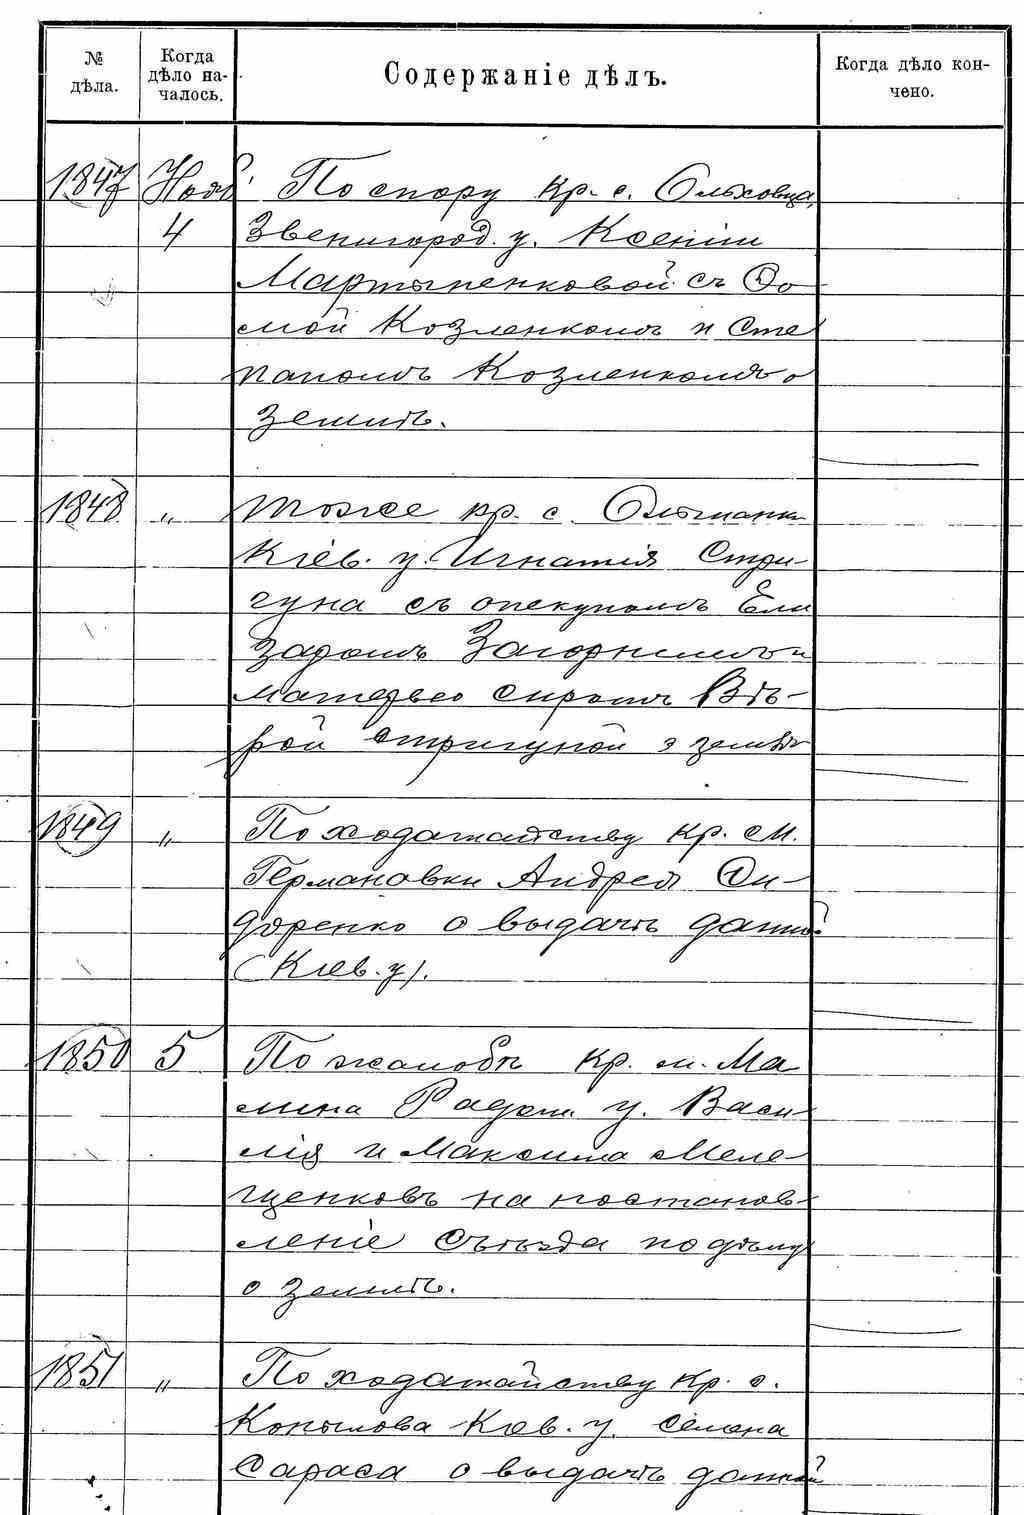 № дѣла.
Когда дѣло на-
чалось.
Содержаніе дѣлъ.
Когда дѣло кон-
чено.
1847 Нояб. По спору кр. с. Ольховца,
4 Звенигород. у. Ксеніи
Мартыненковой съ Ѳо-
мой Козленкомъ и Сте
паномъ Козленкомъ о
землѣ.
1848 „ Тоже кр. с. Ольшанки
Кіев. у. Игнатія Стри-
гуна съ опекуномъ Ели
заромъ Загорнимъ и
матерью сиротъ Вѣ-
рой Стригуной о землѣ
1849 „ По ходатайству кр. м.
Германовки Андрея Ѳи-
доренко о выдачѣ данной
(Кіев. у).
1850 5 По жалобѣ кр. м. Ма
лина Радом. у. Васи-
лія и Максима Меле-
щенковъ на постанов-
леніе Съѣзда по дѣлу
о землѣ.
1851 „ По ходатайству кр. с.
Копылова Кіев. у. Семена
Сараса о выдачѣ данной